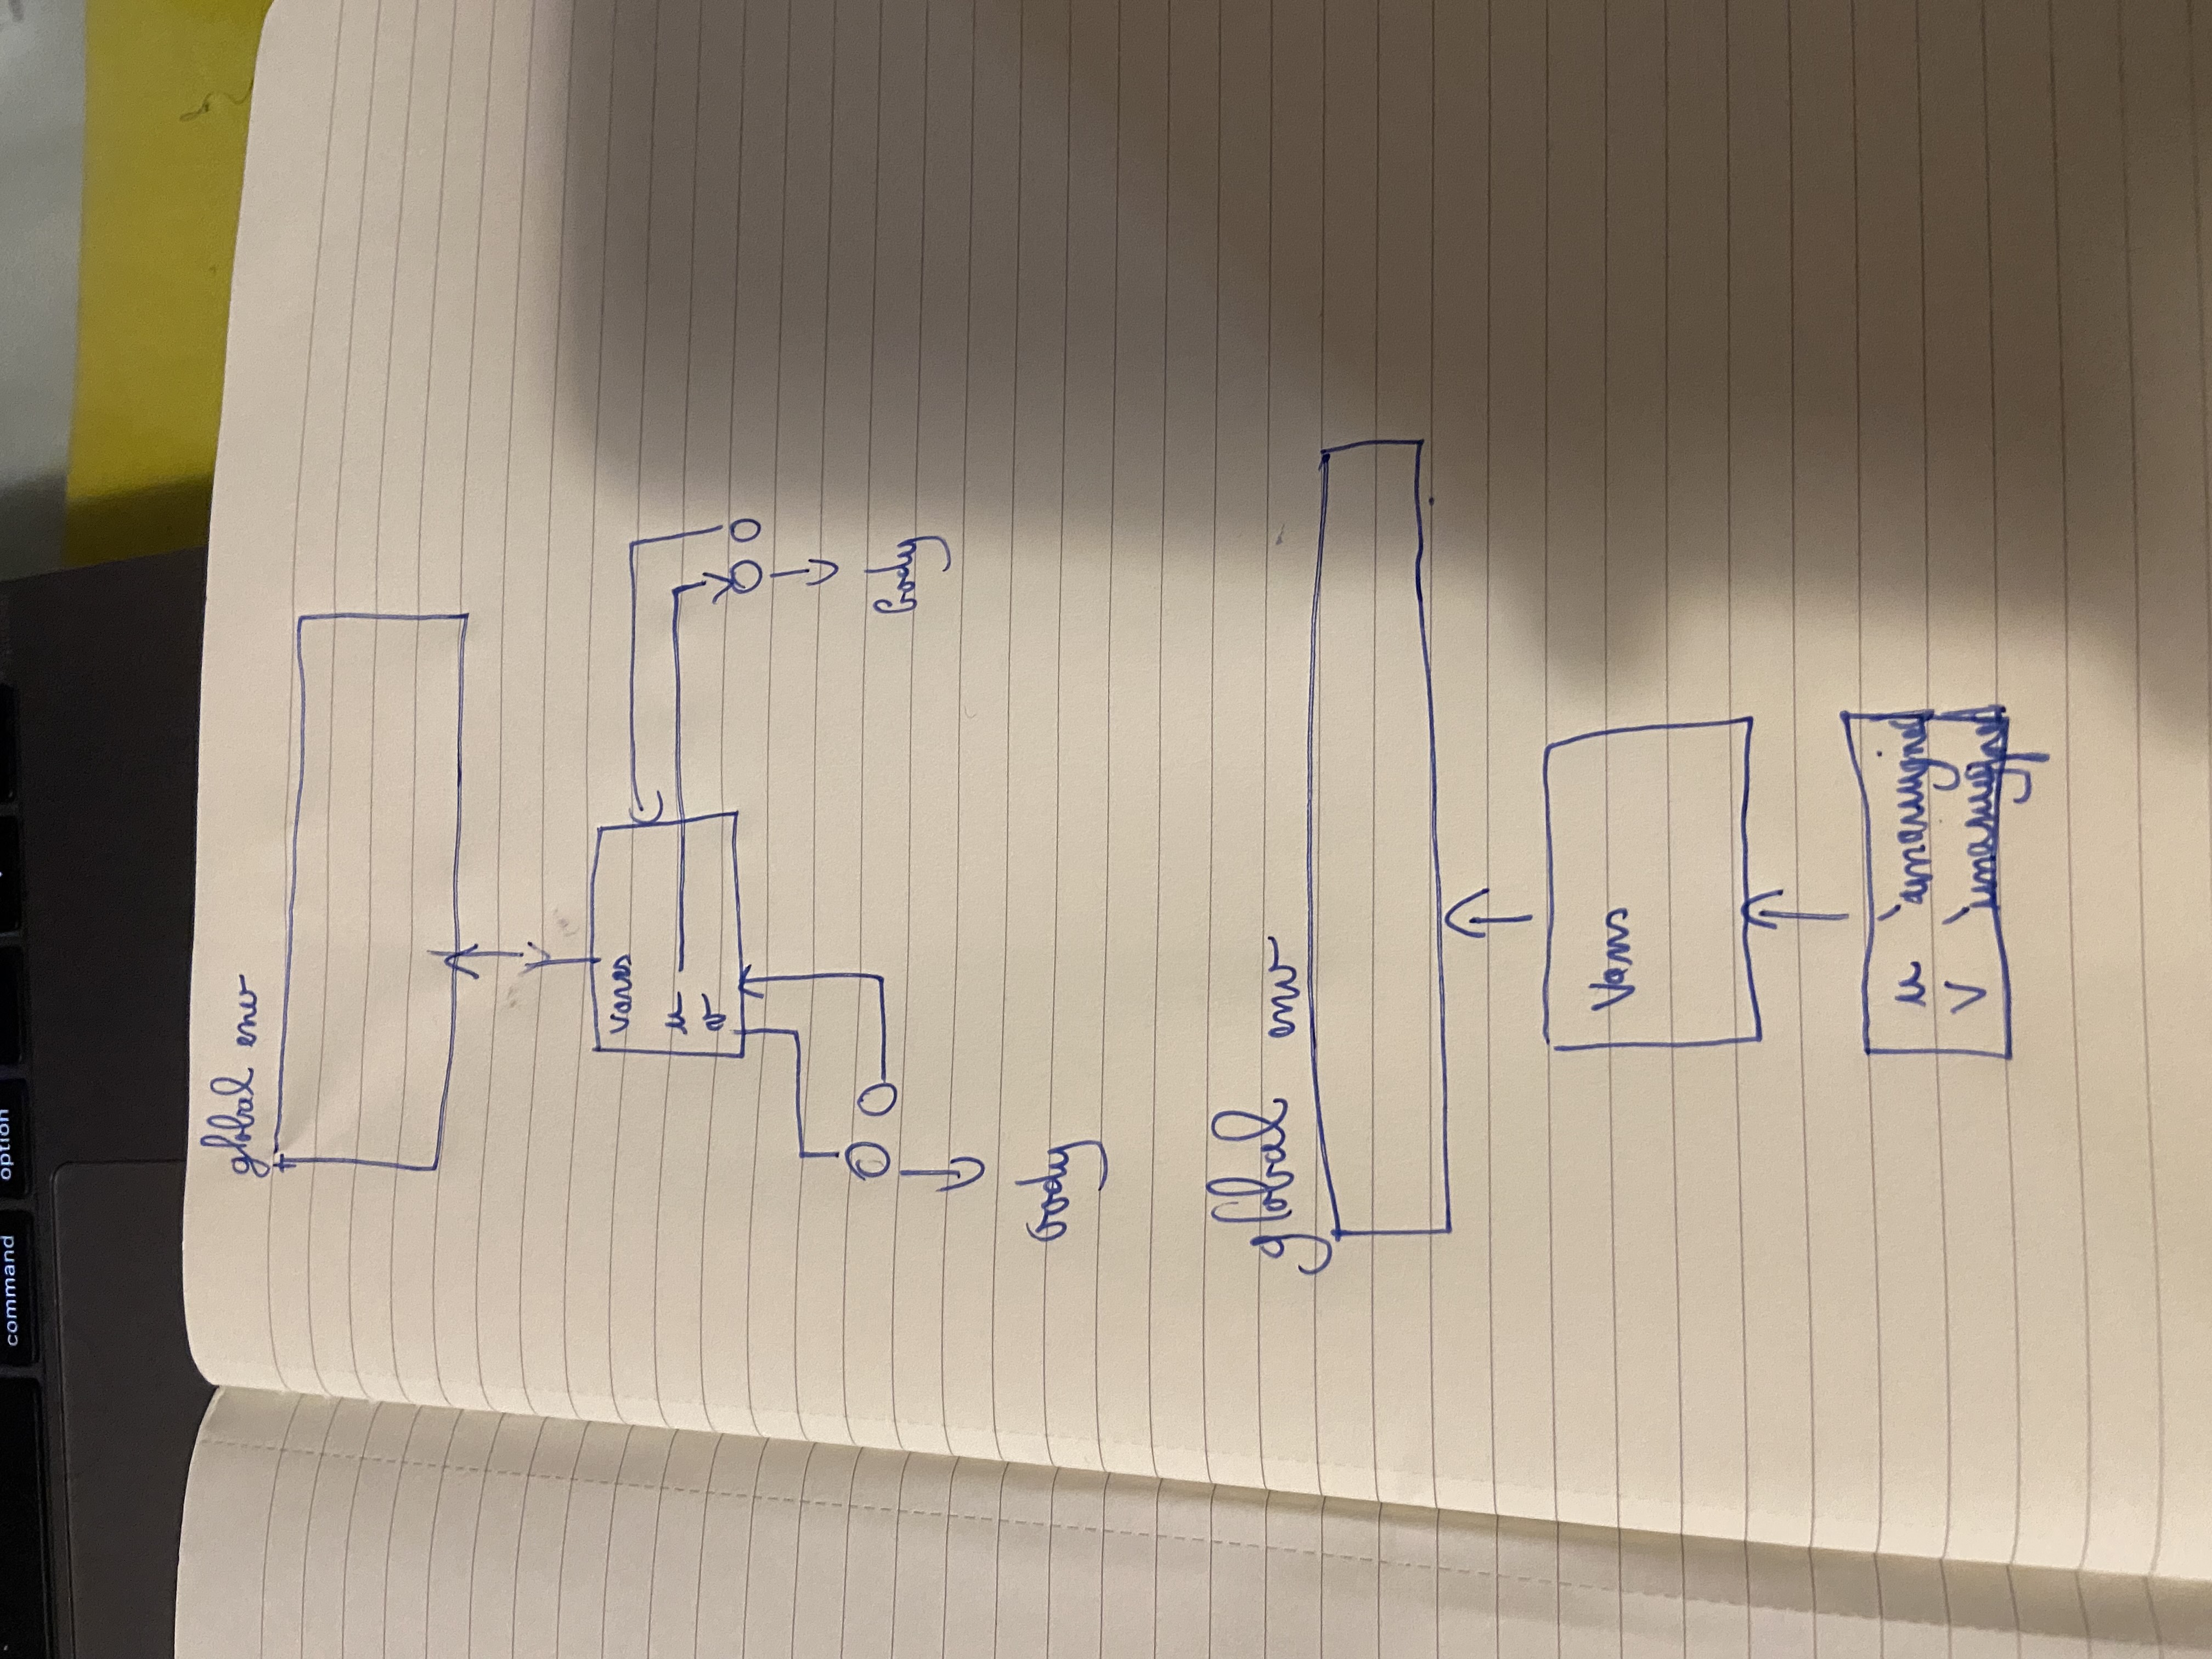 command option
global env
vars
u
v
body
body
global env
Vars
u 'unassigned
v 'unassigned